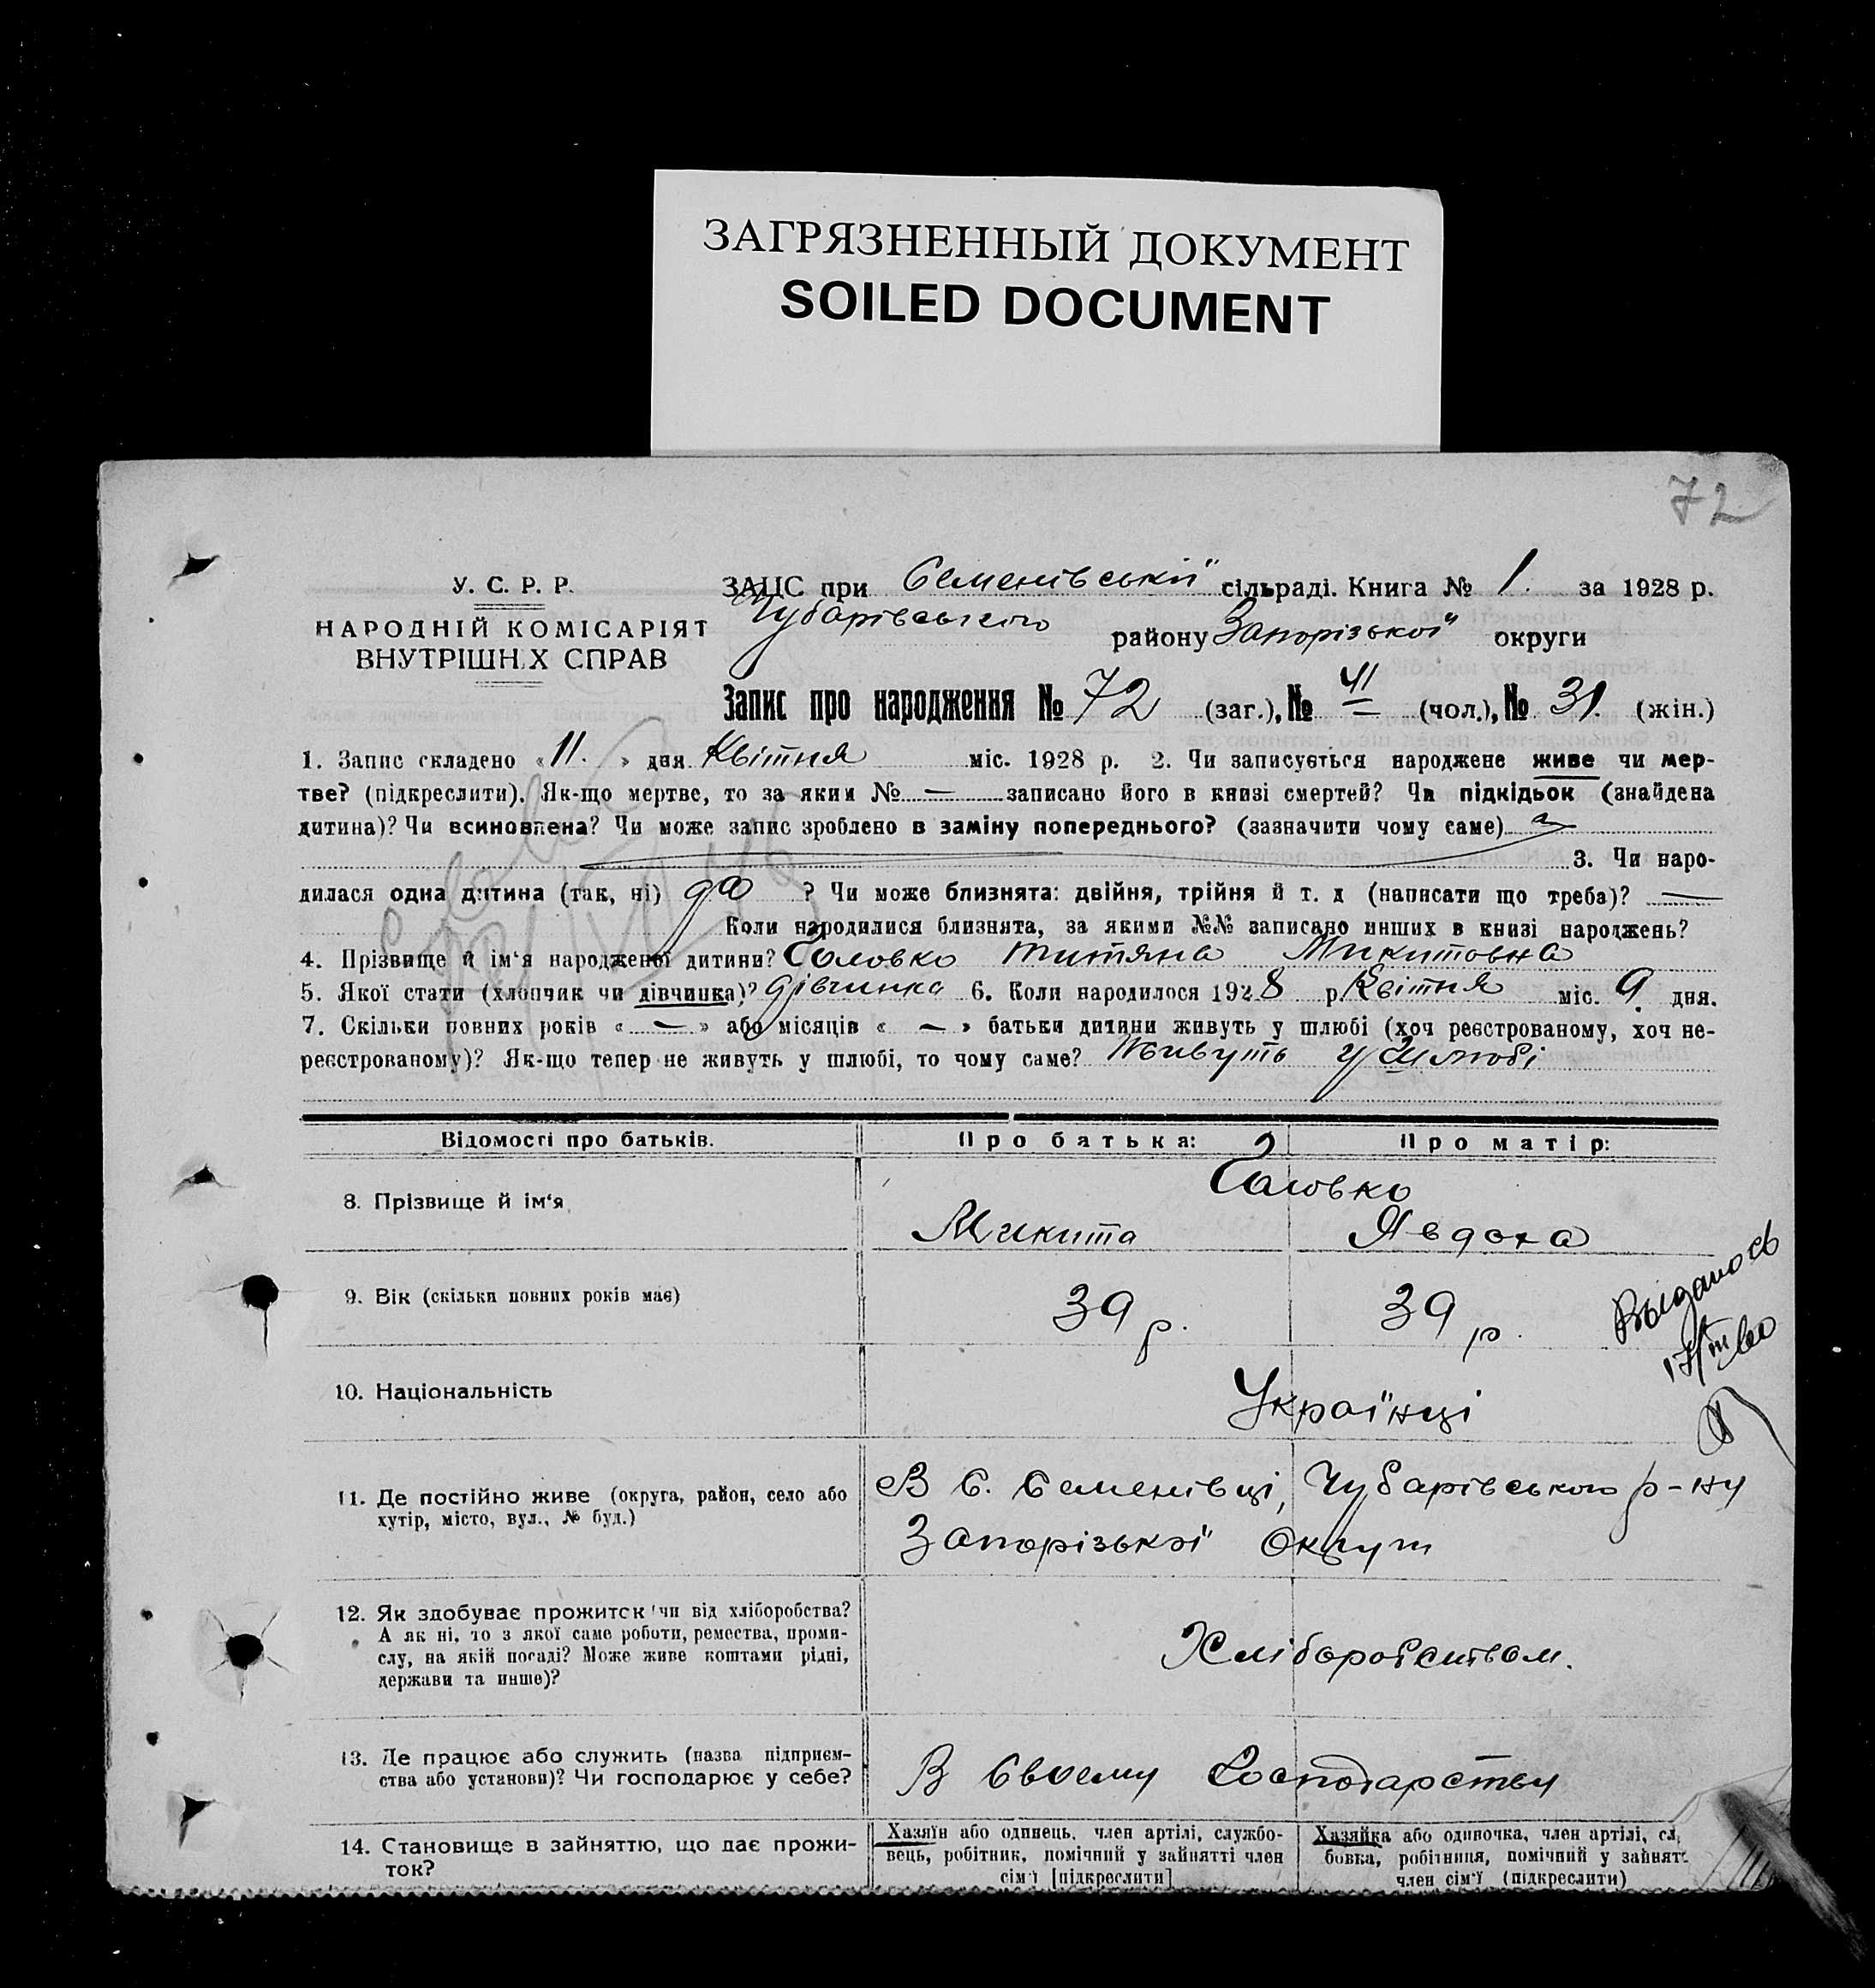 ЗАГРЯЗНЕННЫЙ ДОКУМЕНТ
SOILED DOCUMENT
72
У. С. Р. Р.
НАРОДНІЙ КОМІСАРІЯТ
ВНУТРІШНІХ СПРАВ
ЗАЦС при Семенівській сільраді. Книга № 1. за 1928 р.
Чубарівського району Запорізької округи
Запис про народження № 72 (заг.), № 41 (чол.), № 31. (жін.)
1. Запис складено «11.» дня Квітня міс. 1928 р. 2. Чи записується народжене живе чи мер-
тве? (підкреслити). Як-що мертве, то за яким № — записано його в книзі смертей? Чи підкідьок (знайдена
дитина)? Чи всиновлена? Чи може запис зроблено в заміну попереднього? (зазначити чому саме)
3. Чи наро-
дилася одна дитина (так, ні) да ? Чи може близнята: двійня, трійня й т. д (написати що треба)? —
Коли народилися близнята, за якими №№ записано инших в книзі народжень?
4. Прізвище й ім‘я народженої дитини? Головко Титяна Микитовна
5. Якої стати (хлопчик чи дівчинка)? дівчинка 6. Коли народилося 1928 р. Квітня міс. 9 дня.
7. Скільки повних років « — » або місяців « — » батьки дитини живуть у шлюбі (хоч реєстрованому, хоч не-
реєстрованому)? Як-що тепер не живуть у шлюбі, то чому саме? Живуть у Шлюбі
Відомості про батьків. Про батька: Про матір:
8. Прізвище й ім‘я Головко
Микита Явдоха
9. Вік (скільки повних років має) 39 р. 39 р.
Выдано св
17/III 60
10. Національність Українці
11. Де постійно живе (округа, район, село або
хутір, місто, вул., № буд.)
В С. Семенівці, Чубарівського р-ну
Запорізької Округи
12. Як здобуває прожиток чи від хліборобства?
А як ні, то з якої саме роботи, ремества, проми-
слу, на якій посаді? Може живе коштами рідні,
держави та инше)?
Хліборобством.
13. Де працює або служить (назва підприєм-
ства або установи)? Чи господарює у себе?
В Своєму Господарству
14. Становище в зайняттю, що дає прожи-
ток?
Хазяїн або одинець, член артілі, службо-
вець, робітник, помічний у зайнятті член
сім‘ї [підкреслити]
Хазяйка або одиночка, член артілі, сл
бовка, робітниця, помічний у зайнят
член сім‘ї (підкреслити)